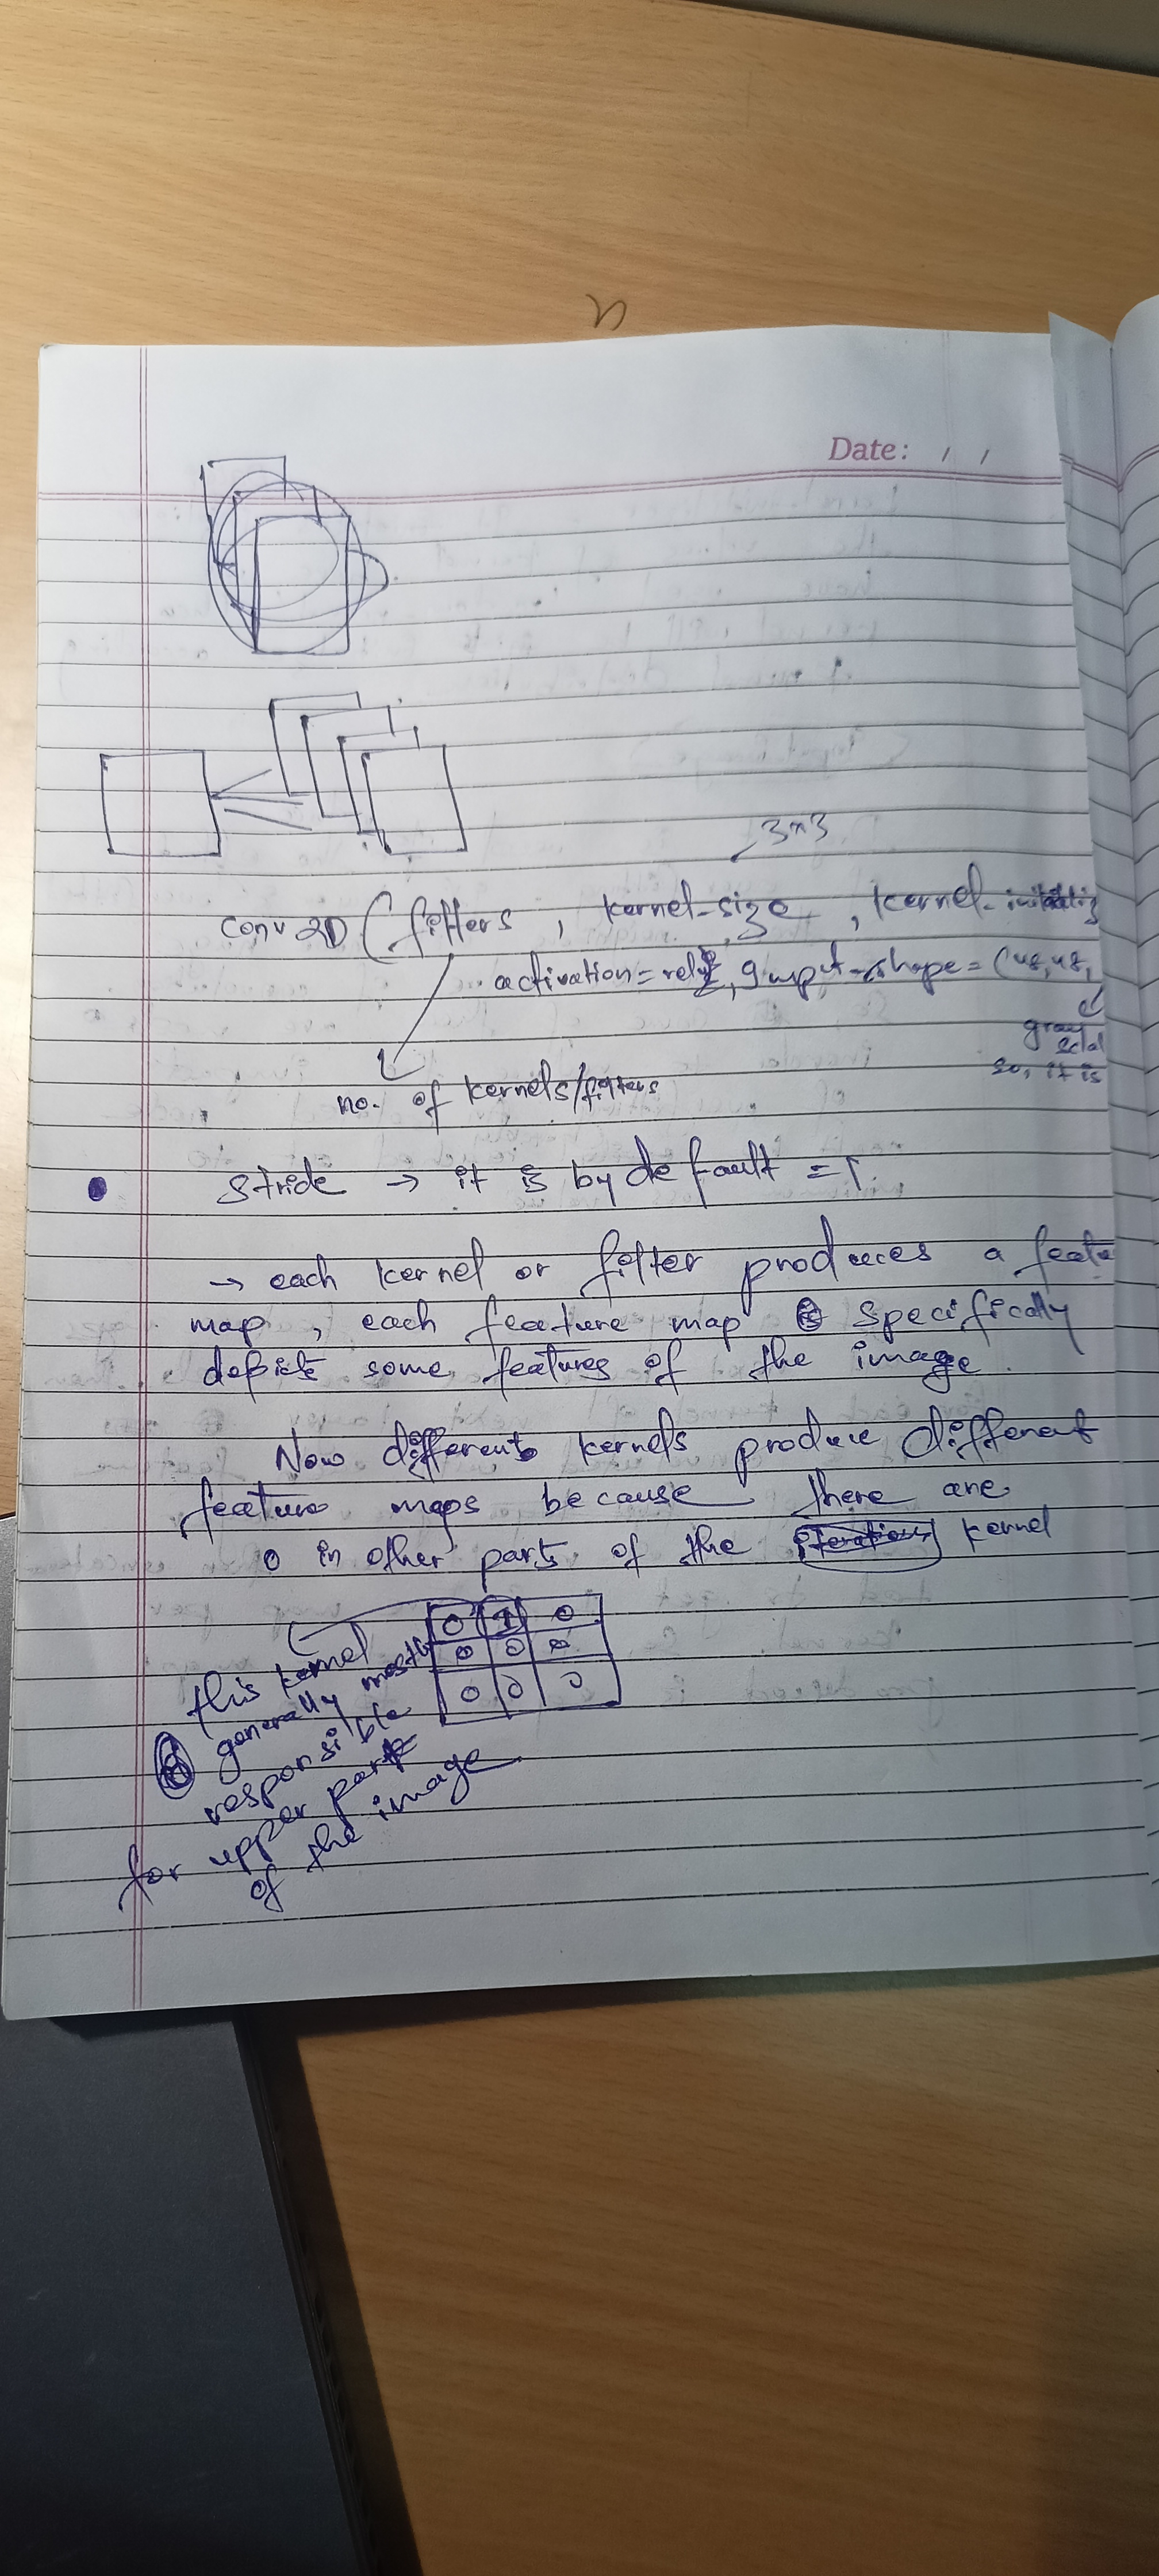 Date: / /
3x3
conv2D (filters, kernel-size, kernel-
activation=relu, input-shape = (48,48,
gray
so, it is
no. of kernels/filters
stride → it is by default = 1.
→ each kernel or filter produces a
map, each feature map specifically
depicts some features of the image.
Now different kernels produce different
feature maps because there are
0 in other parts of the kernel
0 1 0
0 0 0
0 0 0
this kernel
generally mostly
responsible
for upper part
of the image